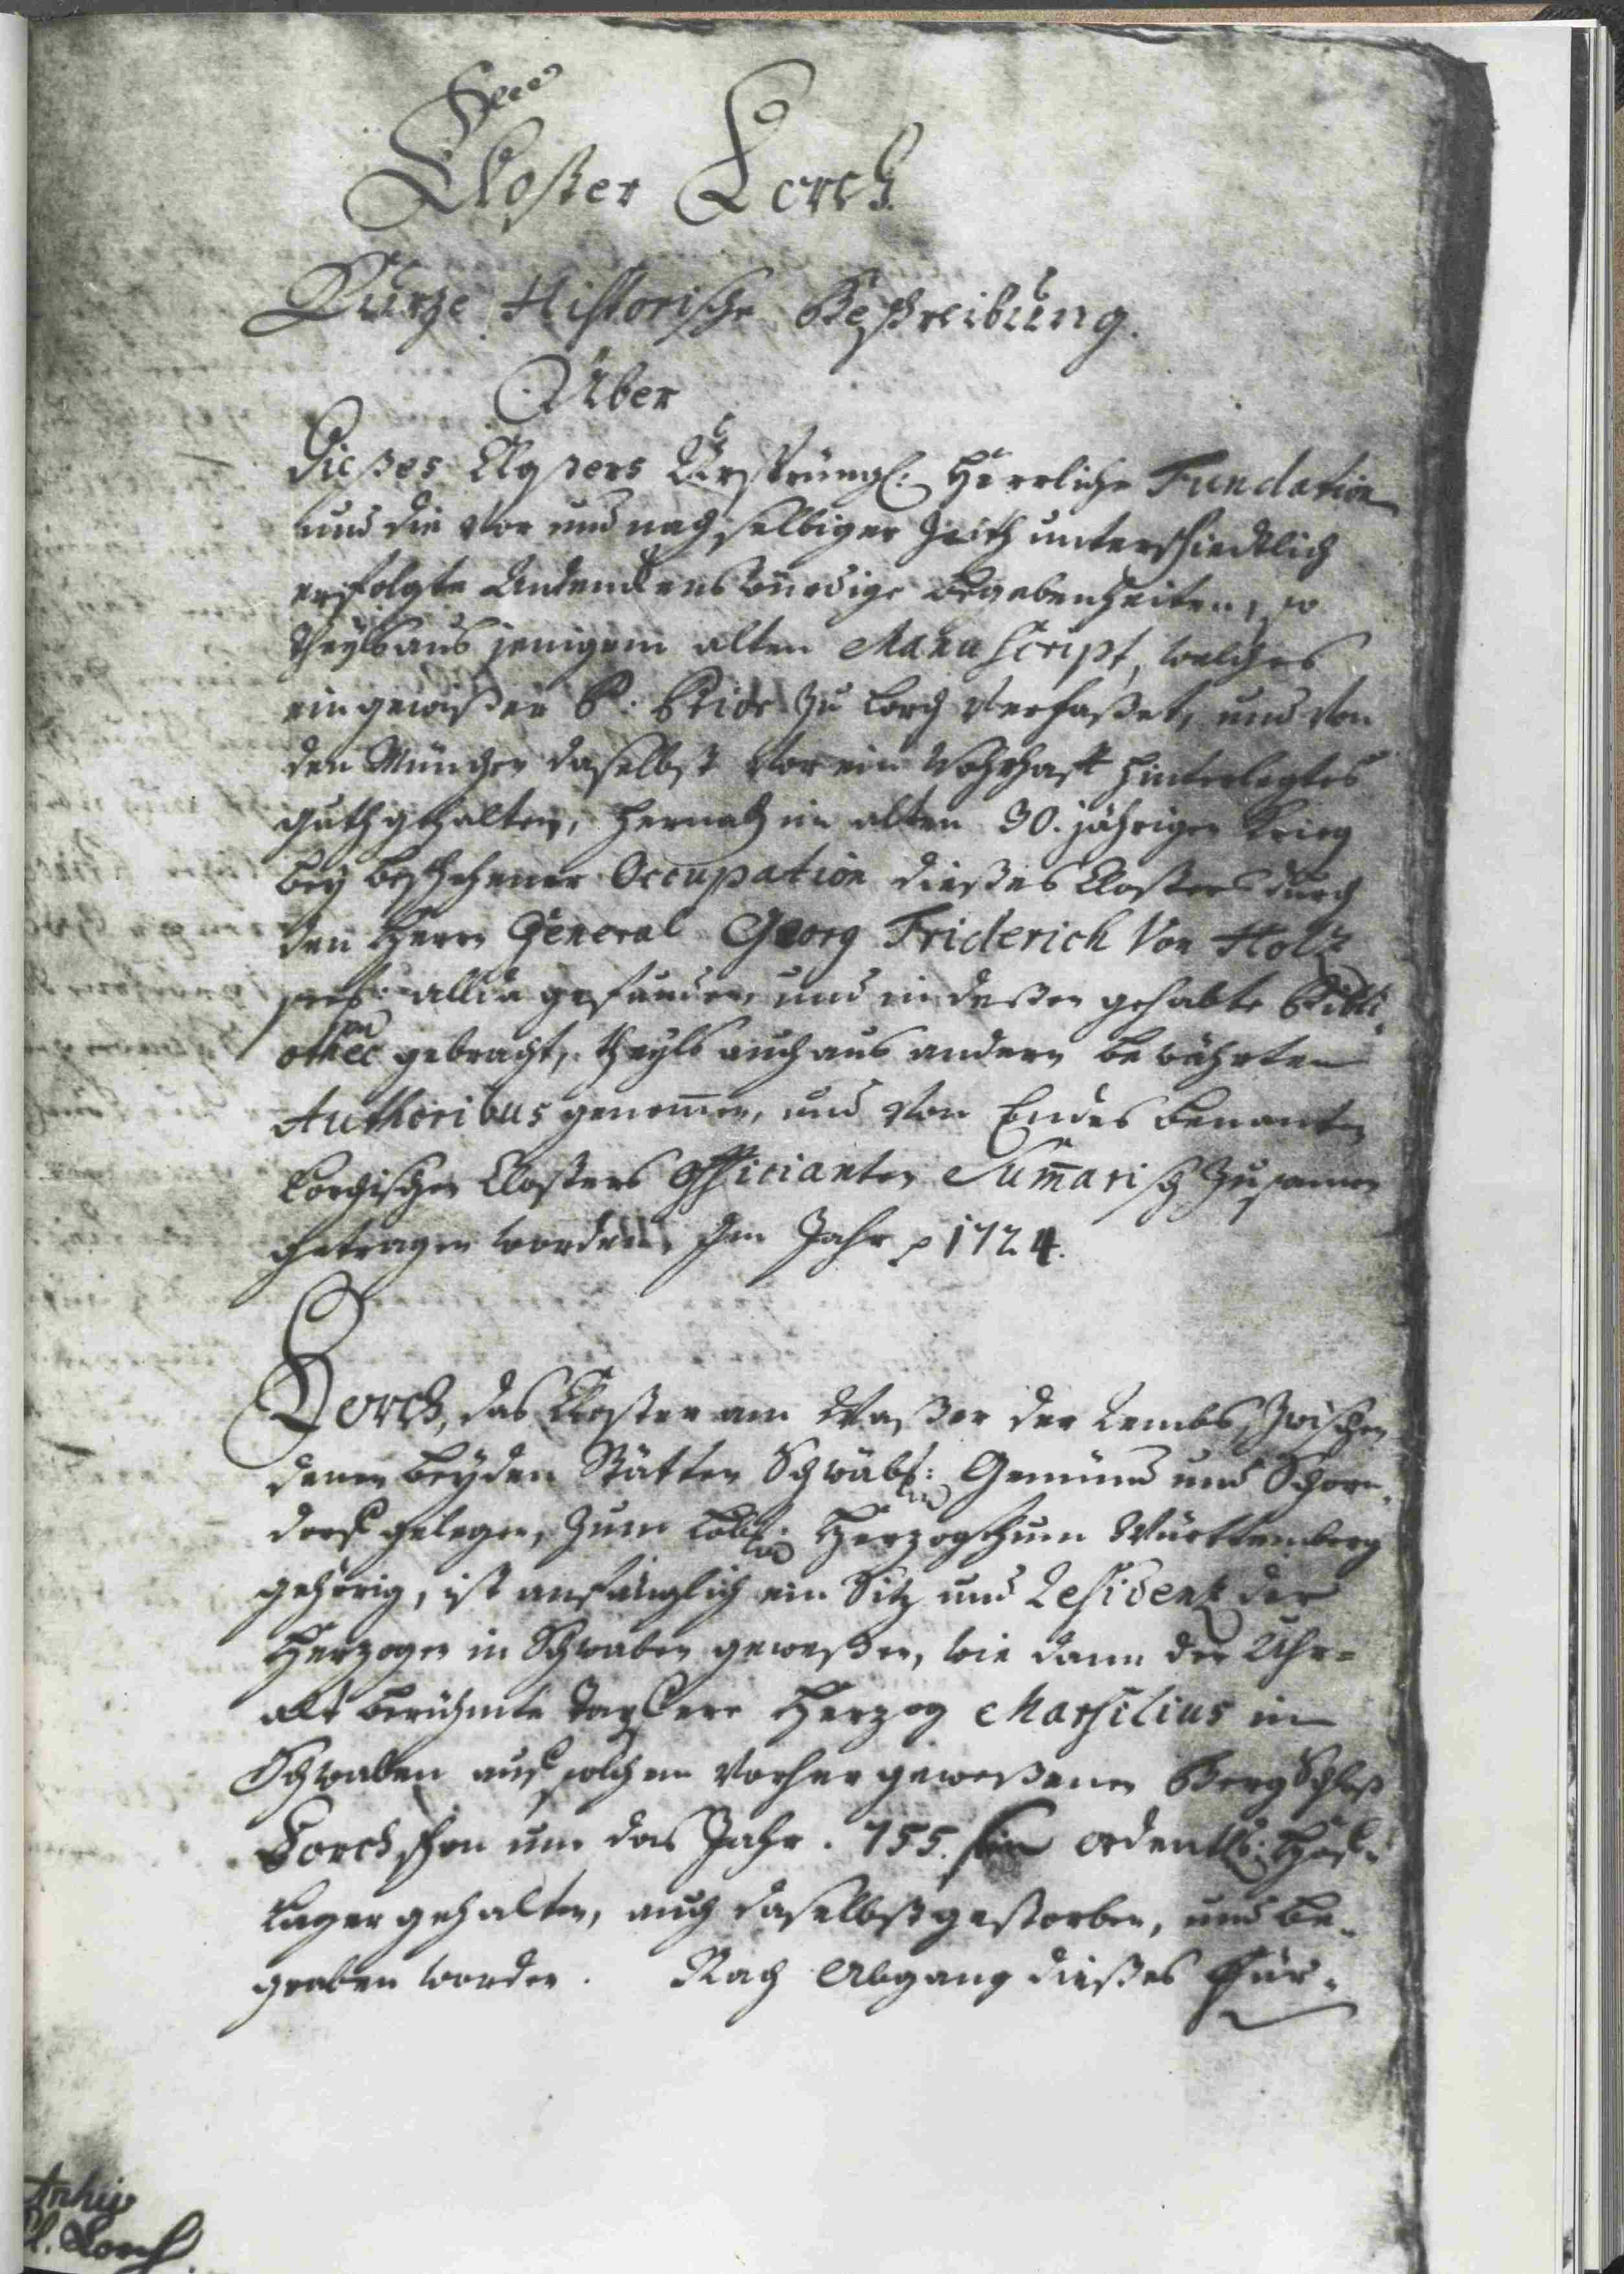 Closter Lorch.
Kurtze Historische Beschreibung.
Über
Dießes Closters Ursprüngl: Herrliche Fundation
und die vor und nach selbiger Zeith unterschiedtlich
erfolgte Andenckens würdige Begebenheiten, so
theylß aus jenigem alten Manuscript, welches
ein gewißer P: zu Lorch verfaßet, und von
den München daselbst vor ein hinterlegtes
guth gehalten, hernach im alten 30. jährigen Krieg
bey beschehener Occupation dießes Closters durch
den Herrn General Georg Friderich Von Holz
allda gefunden, und in deßen gehabte Bibli-
othec gebracht, theylß auch aus andern bewährten
Authoribus genommen, und von Endes benanten
Lorchischen Closters Officianten Sumarisch zusamen
getragen worden, Im Jahr 1724.
Lorch, das Closter am Waßer der Rembs zwischen
denen beyden Stätten Schwäb: Gemünd und Schorn-
dorf gelegen, zum Löbl: Herzogthum Württemberg
gehörig, ist anfänglich ein Sitz und Residenz der
Herzogen in Schwaben geweßen, wie dann der Uhr-
alt berühmte tapfere Herzog Marsilius in
Schwaben auf solchem vorher geweßenen Berg Schloß
Lorch schon um das Jahr. 755. sein ordentl: Hof-
Lager gehalten, auch daselbst gestorben, und be-
graben worden. Nach Abgang dießes Für-
Archiv
Kl. Lorch.